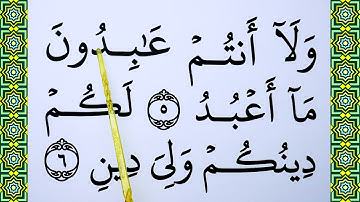 وَلَآ أَنتُمۡ عَٰبِدُونَ
مَآ أَعۡبُدُ ٥ لَكُمۡ
دِينُكُمۡ وَلِيَ دِينِ ٦